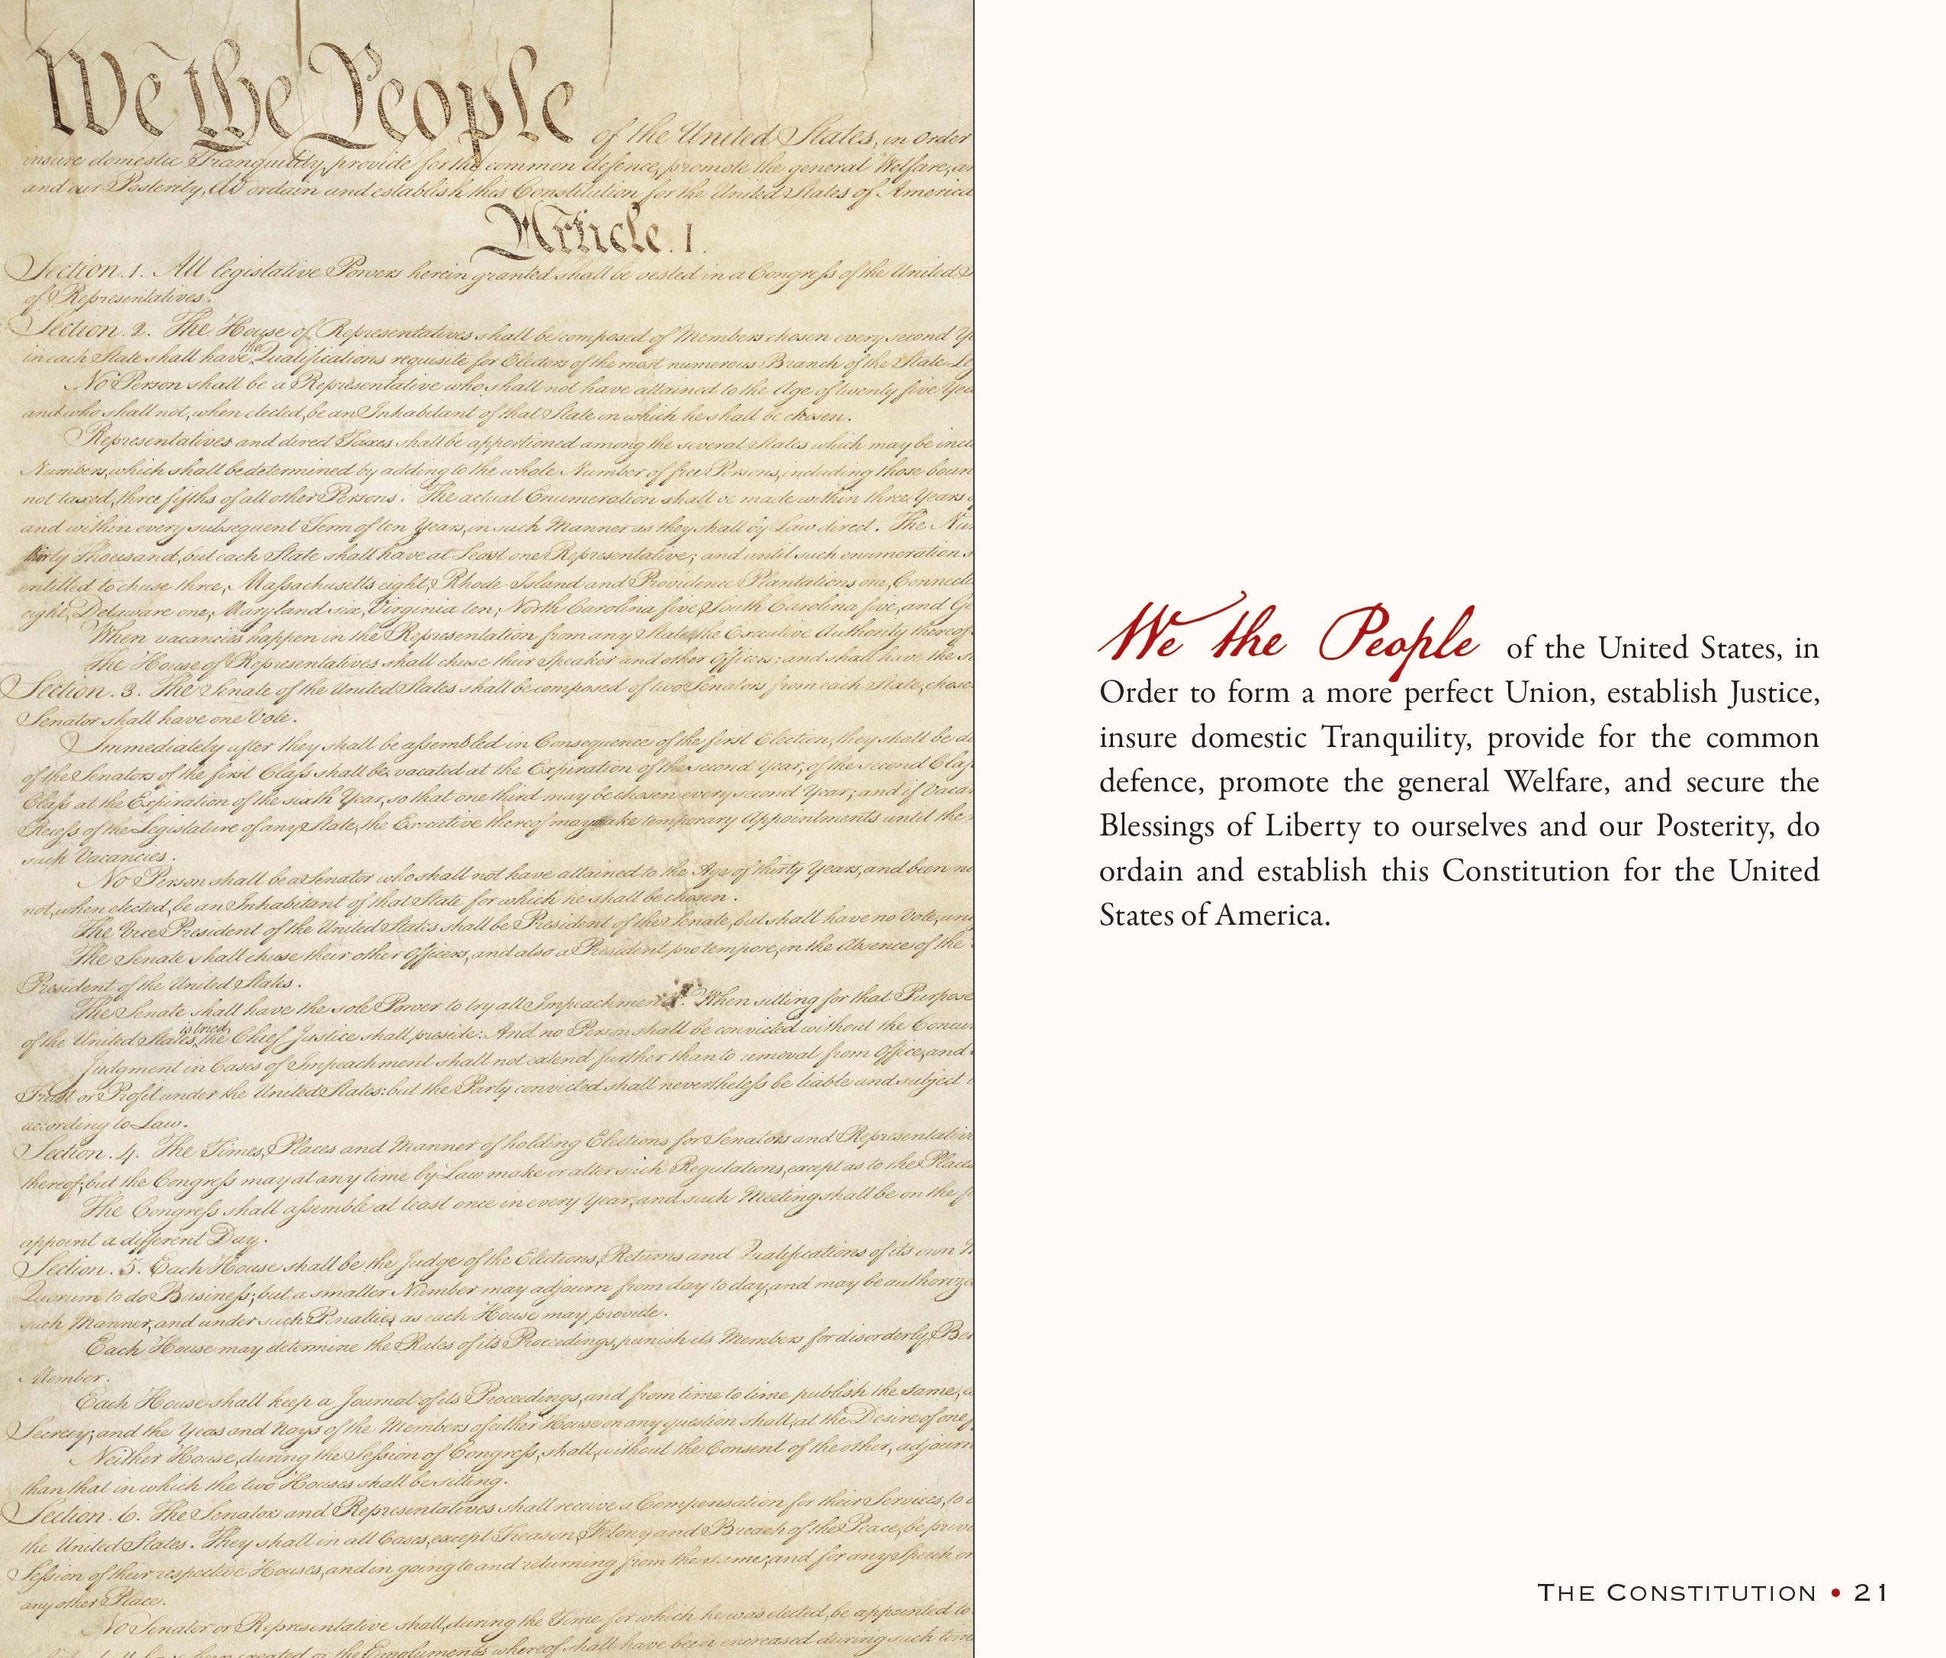 We the People of the United States, in Order
insure domestic Tranquility, provide for the common defence, promote the general Welfare, an
and our Posterity, do ordain and establish this Constitution for the United States of America
Article. I.
Section. 1. All legislative Powers herein granted shall be vested in a Congress of the United S
of Representatives.
Section. 2. The House of Representatives shall be composed of Members chosen every second Ye
in each State shall have the Qualifications requisite for Electors of the most numerous Branch of the State Le
No Person shall be a Representative who shall not have attained to the Age of twenty five Yea
and who shall not, when elected, be an Inhabitant of that State in which he shall be chosen.
Representatives and direct Taxes shall be apportioned among the several States which may be inclu
Numbers, which shall be determined by adding to the whole Number of free Persons, including those boun
not taxed, three fifths of all other Persons. The actual Enumeration shall be made within three Years
and within every subsequent Term of ten Years, in such Manner as they shall by Law direct. The Nu
thirty Thousand, but each State shall have at Least one Representative; and until such enumeration s
entitled to chuse three, Massachusetts eight, Rhode-Island and Providence Plantations one, Connecti
eight, Delaware one, Maryland six, Virginia ten, North Carolina five, South Carolina five, and Ge
When vacancies happen in the Representation from any State, the Executive Authority thereof
The House of Representatives shall chuse their Speaker and other Officers; and shall have the s
Section. 3. The Senate of the United States shall be composed of two Senators from each State, chose
Senator shall have one Vote.
Immediately after they shall be assembled in Consequence of the first Election, they shall be di
of the Senators of the first Class shall be vacated at the Expiration of the second Year, of the second Clas
Class at the Expiration of the sixth Year, so that one third may be chosen every second Year; and if Vacan
Recess of the Legislature of any State, the Executive thereof may make temporary Appointments until the
such Vacancies.
No Person shall be a Senator who shall not have attained to the Age of thirty Years, and been ni
not, when elected, be an Inhabitant of that State for which he shall be chosen.
The Vice President of the United States shall be President of the Senate, but shall have no Vote, unl
The Senate shall chuse their other Officers, and also a President pro tempore, in the Absence of the
President of the United States.
The Senate shall have the sole Power to try all Impeachments. When sitting for that Purpose
of the United States is tried, the Chief Justice shall preside: And no Person shall be convicted without the Concur
Judgment in Cases of Impeachment shall not extend further than to removal from Office, and
Trust or Profit under the United States: but the Party convicted shall nevertheless be liable and subject
according to Law.
Section. 4. The Times, Places and Manner of holding Elections for Senators and Representative
thereof; but the Congress may at any time by Law make or alter such Regulations, except as to the Places
The Congress shall assemble at least once in every Year, and such Meeting shall be on the fi
appoint a different Day.
Section. 5. Each House shall be the Judge of the Elections, Returns and Qualifications of its own M
Quorum to do Business; but a smaller Number may adjourn from day to day, and may be authorize
such Manner, and under such Penalties as each House may provide.
Each House may determine the Rules of its Proceedings, punish its Members for disorderly Be
Member.
Each House shall keep a Journal of its Proceedings, and from time to time publish the same, e
Secrecy; and the Yeas and Nays of the Members of either House on any question shall, at the Desire of one f
Neither House, during the Session of Congress, shall, without the Consent of the other, adjourn
than that in which the two Houses shall be sitting.
Section. 6. The Senators and Representatives shall receive a Compensation for their Services, to
the United States. They shall in all Cases, except Treason, Felony and Breach of the Peace, be privi
Session of their respective Houses, and in going to and returning from the same; and for any Speech or
any other Place.
No Senator or Representative shall, during the Time for which he was elected, be appointed to
shall have been created, or the Emoluments whereof shall have been encreased during such time
We the People of the United States, in
Order to form a more perfect Union, establish Justice,
insure domestic Tranquility, provide for the common
defence, promote the general Welfare, and secure the
Blessings of Liberty to ourselves and our Posterity, do
ordain and establish this Constitution for the United
States of America.
The Constitution • 21